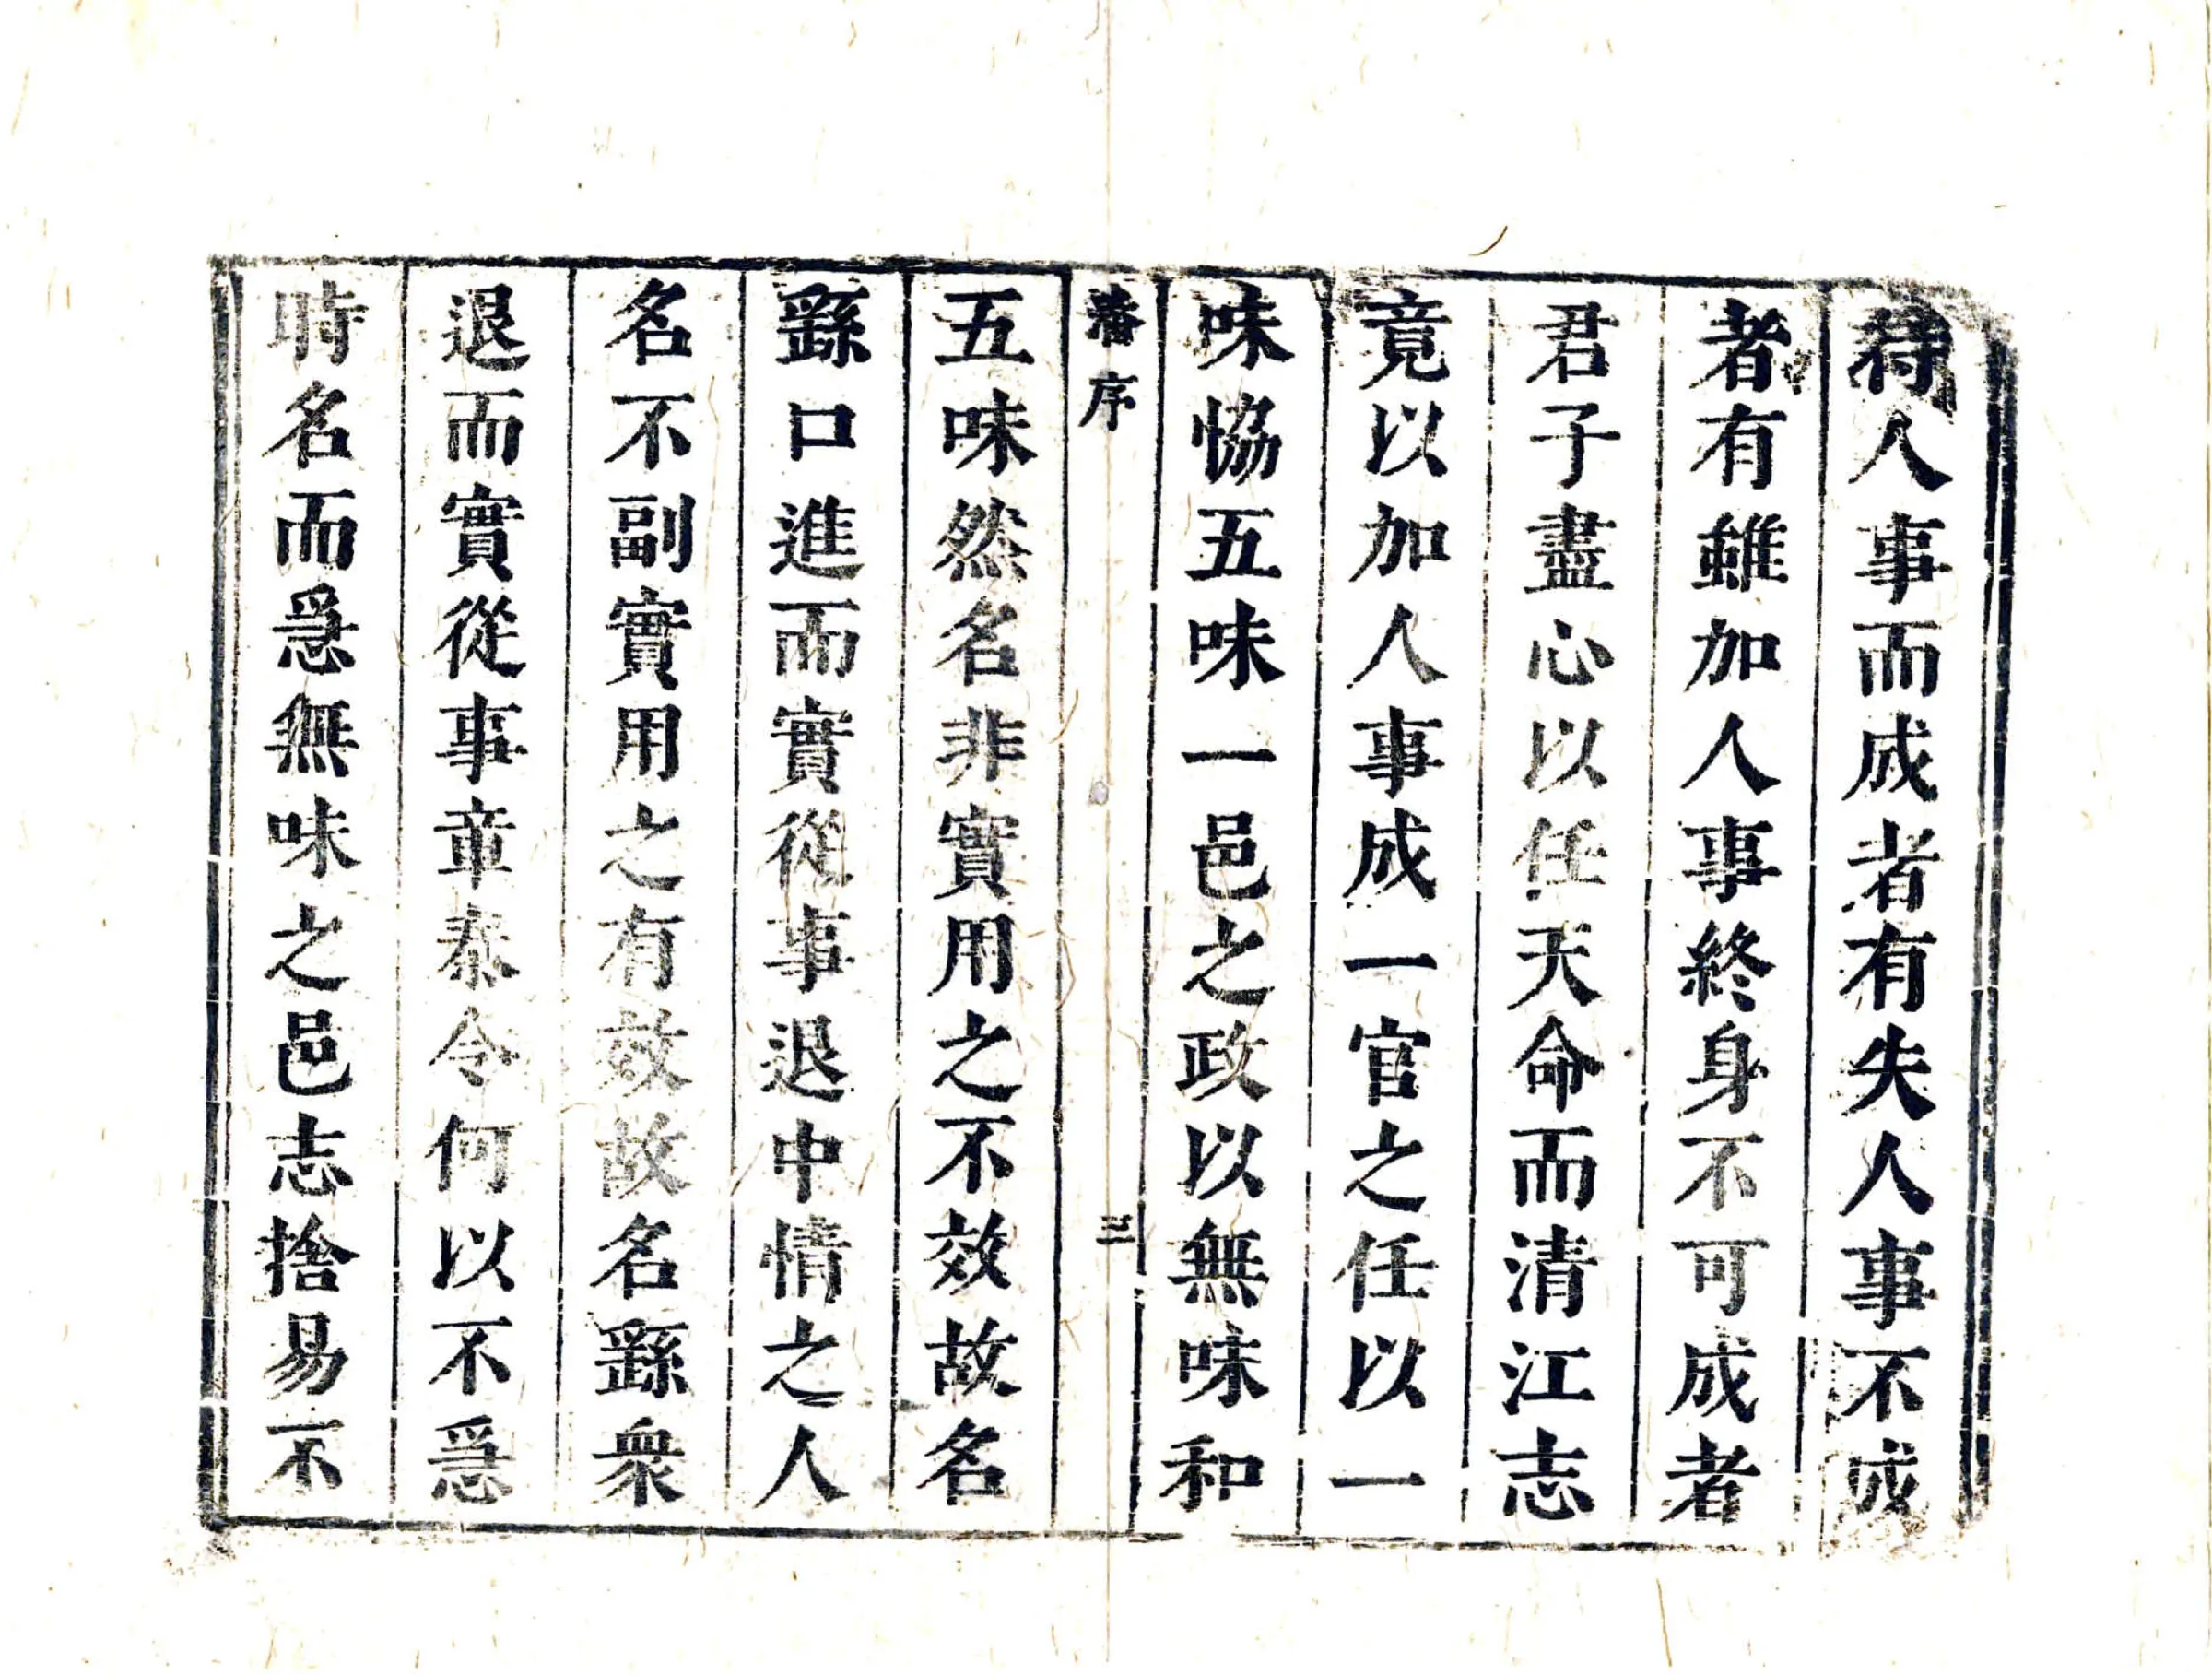 待人事而成者有失人事不成
者有雖加人事終身不可成者
君子盡心以任天命而清江志
竟以加人事成一官之任以一
味恊五味一邑之政以無味和
藩序
三
五味然名非實用之不效故名
繇口進而實從事退中情之人
名不副實用之有效故名繇衆
退而實從事章泰令何以不爲
時名而爲無味之邑志捨易不